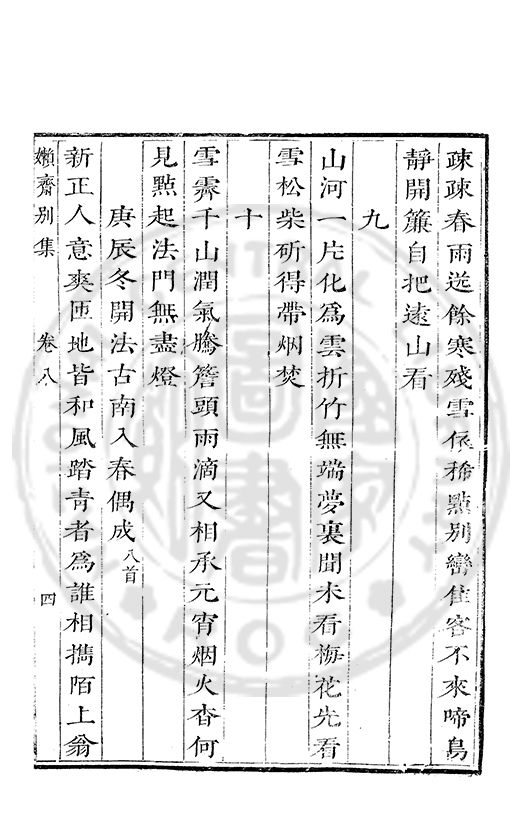 疎疎春雨送餘寒殘雪依稀點別巒佳客不來啼鳥
靜開簾自把遠山看
九
山河一片化爲雲折竹無端夢裏聞未看梅花先看
雪松柴斫得帶烟焚
十
雪霽千山潤氣騰簷頭雨滴又相承元宵烟火杳何
見㸃起法門無盡燈
庚辰冬開法古南入春偶成八首
新正人意爽匝地皆和風踏青者爲誰相攜陌上翁
嬾齋別集　卷八　四